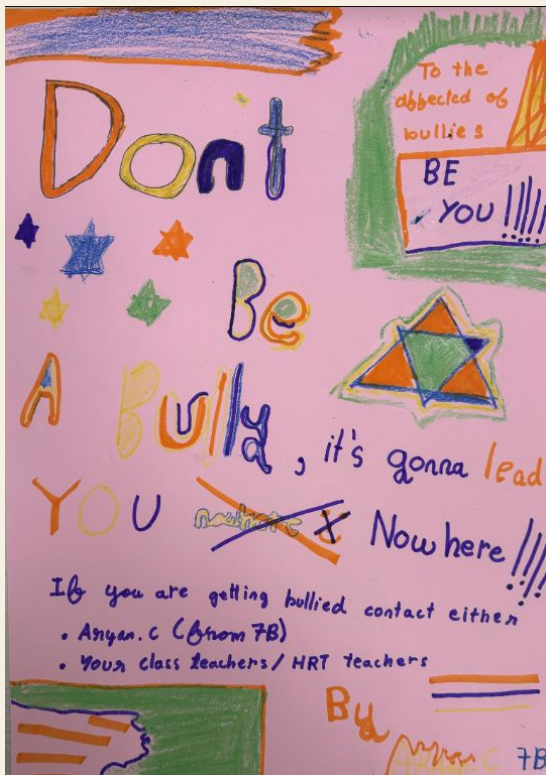 To the
affected of
bullies
BE
YOU !!!!!
Don't
Be
A Bully, it's gonna lead
YOU Nowhere !!!!
If you are getting bullied contact either
• Aryan.C (from 7B)
• Your class teachers/ HRT teachers
By
Aryan.C 7B